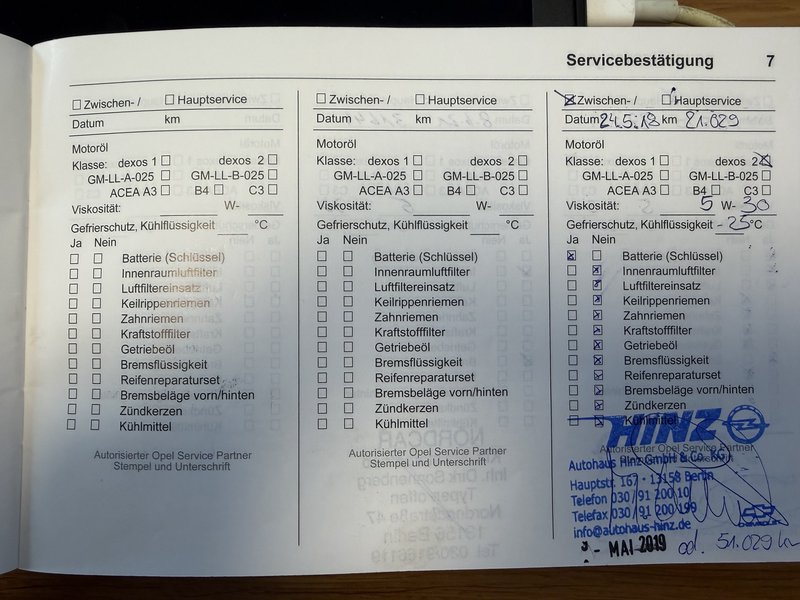 Servicebestätigung 7
Zwischen- / Hauptservice
Datum km
Motoröl
Klasse: dexos 1 dexos 2
GM-LL-A-025 GM-LL-B-025
ACEA A3 B4 C3
Viskosität: W-
Gefrierschutz, Kühlflüssigkeit °C
Ja Nein
Batterie (Schlüssel)
Innenraumluftfilter
Luftfiltereinsatz
Keilrippenriemen
Zahnriemen
Kraftstofffilter
Getriebeöl
Bremsflüssigkeit
Reifenreparaturset
Bremsbeläge vorn/hinten
Zündkerzen
Kühlmittel
Autorisierter Opel Service Partner
Stempel und Unterschrift
Zwischen- / Hauptservice
Datum km
Motoröl
Klasse: dexos 1 dexos 2
GM-LL-A-025 GM-LL-B-025
ACEA A3 B4 C3
Viskosität: W-
Gefrierschutz, Kühlflüssigkeit °C
Ja Nein
Batterie (Schlüssel)
Innenraumluftfilter
Luftfiltereinsatz
Keilrippenriemen
Zahnriemen
Kraftstofffilter
Getriebeöl
Bremsflüssigkeit
Reifenreparaturset
Bremsbeläge vorn/hinten
Zündkerzen
Kühlmittel
Autorisierter Opel Service Partner
Stempel und Unterschrift
Zwischen- / Hauptservice
Datum 24.5.18 km 21.029
Motoröl
Klasse: dexos 1 dexos 2
GM-LL-A-025 GM-LL-B-025
ACEA A3 B4 C3
Viskosität: 5 W- 30
Gefrierschutz, Kühlflüssigkeit -25 °C
Ja Nein
Batterie (Schlüssel)
Innenraumluftfilter
Luftfiltereinsatz
Keilrippenriemen
Zahnriemen
Kraftstofffilter
Getriebeöl
Bremsflüssigkeit
Reifenreparaturset
Bremsbeläge vorn/hinten
Zündkerzen
Kühlmittel
HINZ
Autorisierter Opel Service Partner
Autohaus Hinz GmbH & Co. KG
Hauptstr. 167 · 13158 Berlin
Telefon 030/91 200 10
Telefax 030/91 200 199
info@autohaus-hinz.de
- MAI 2019 od. 51.029 km